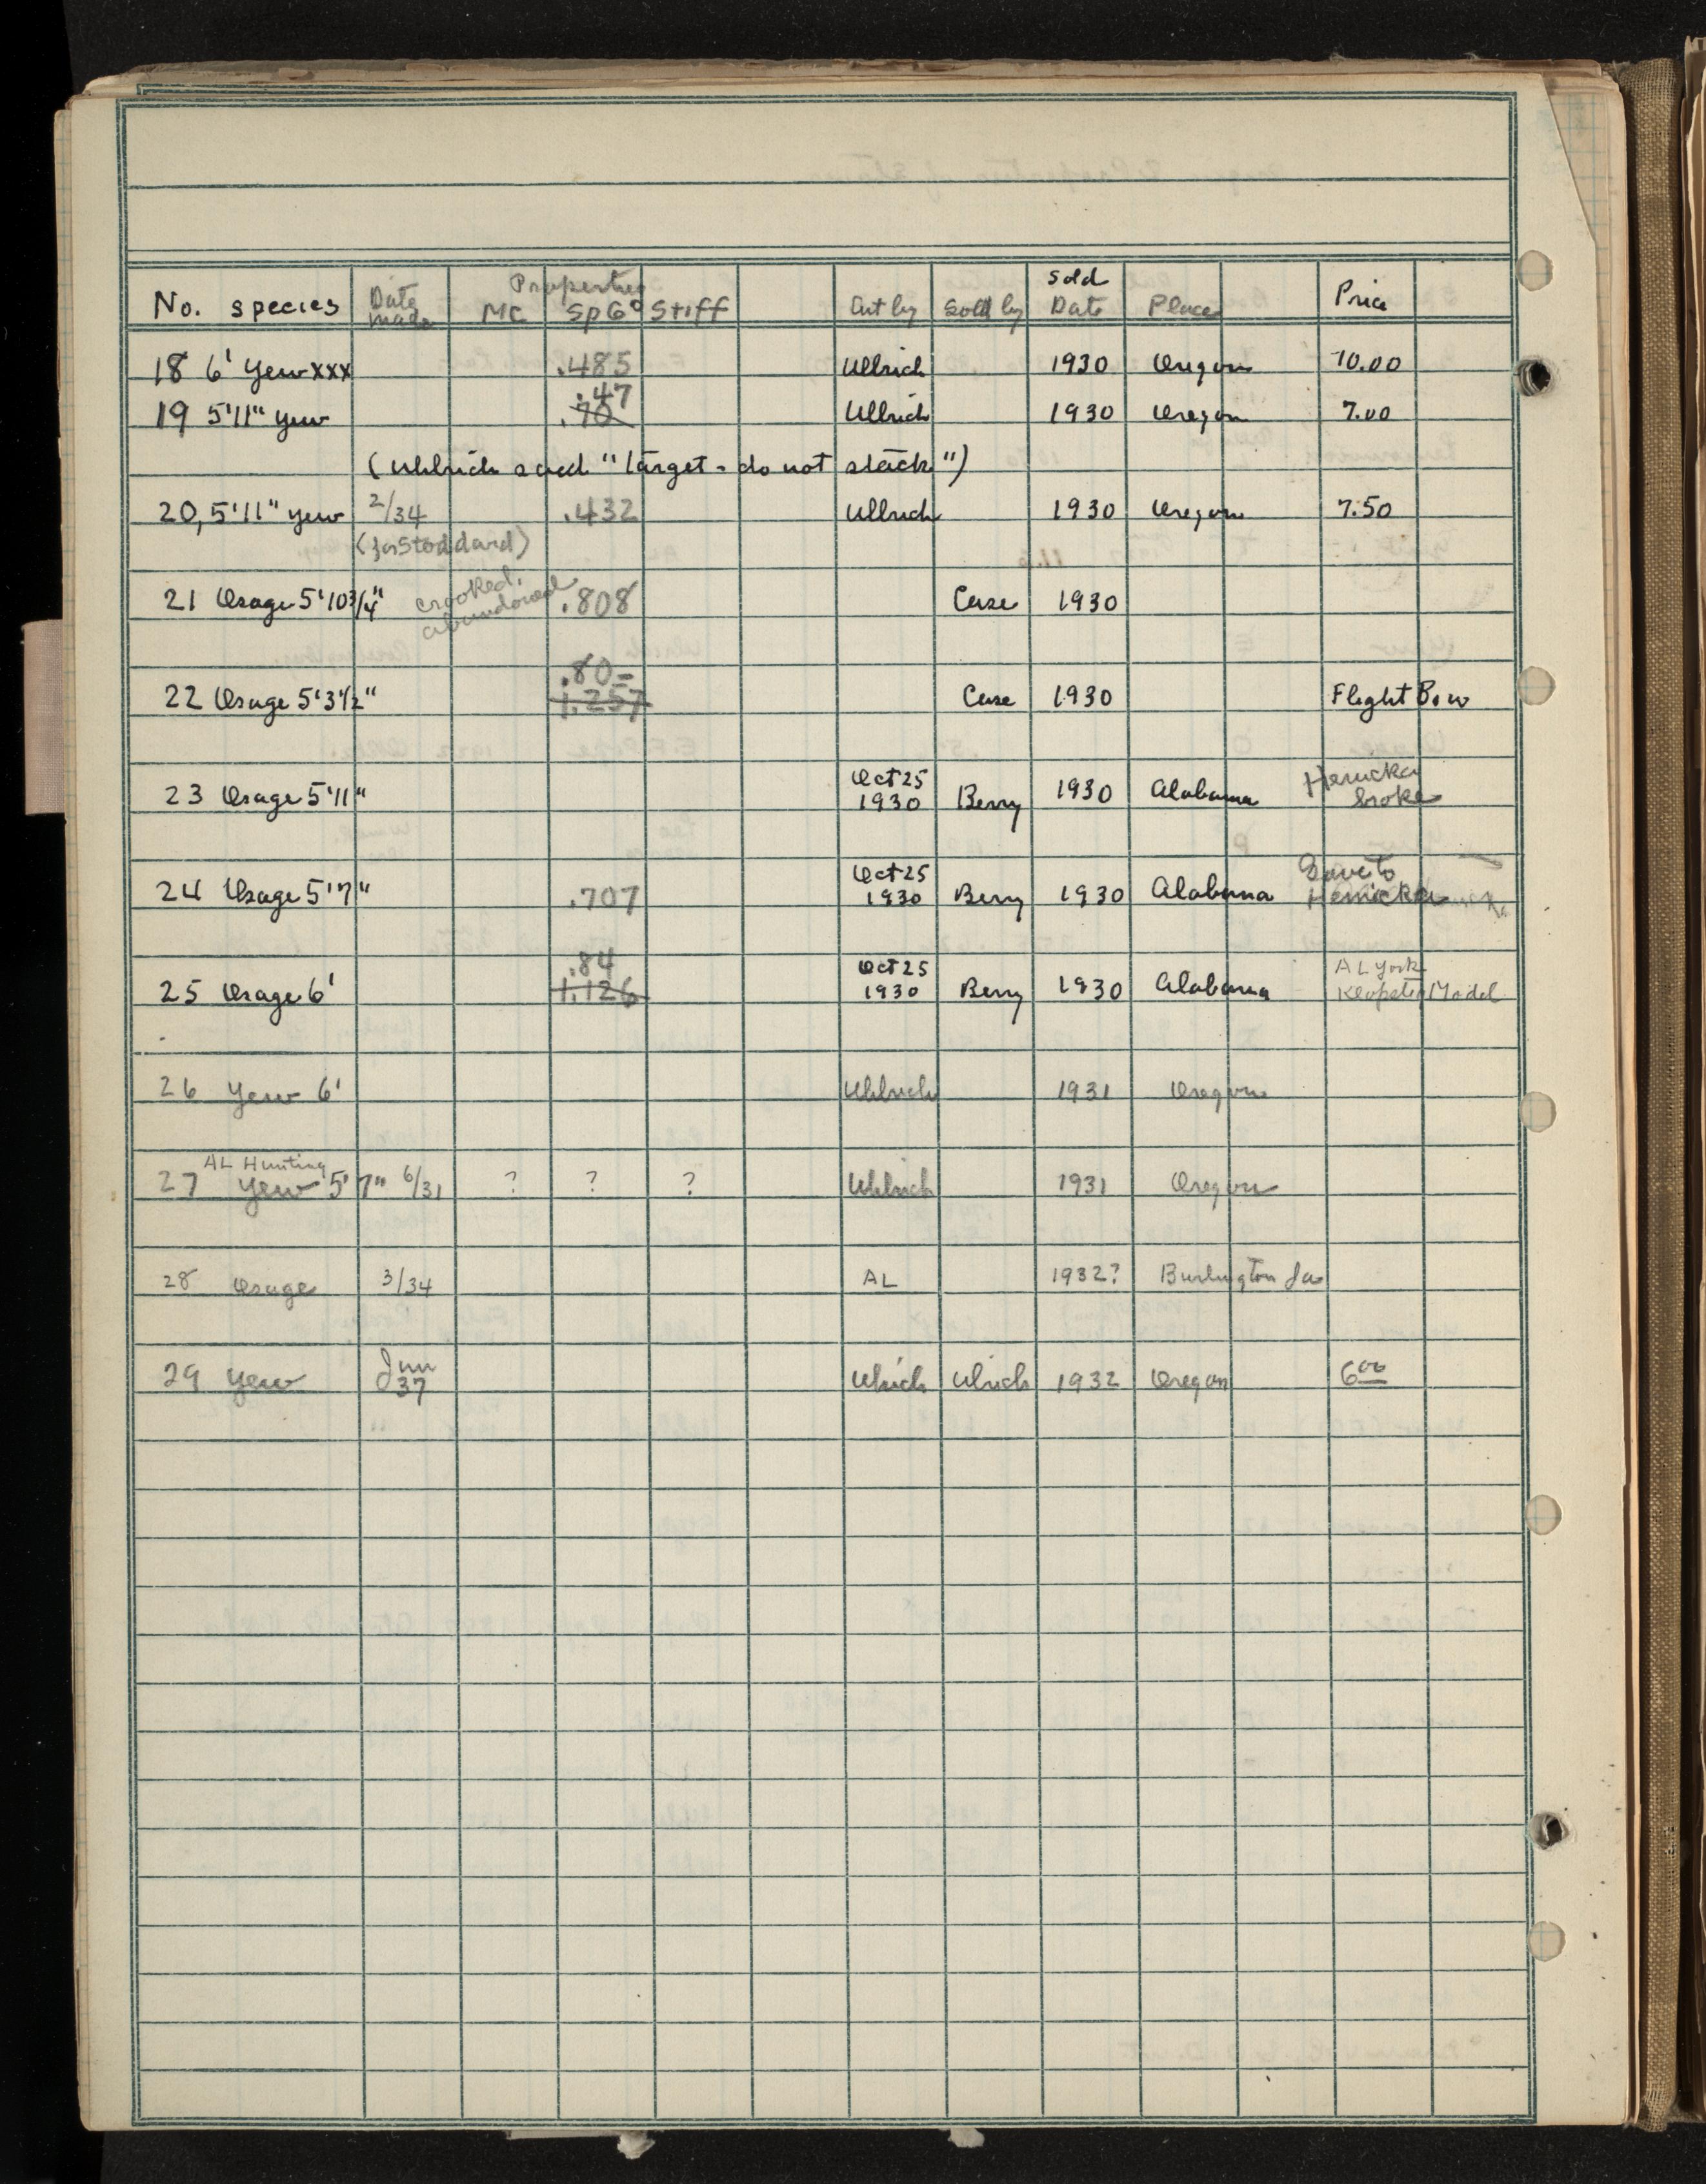 Properties
Sold
No. species Date made MC Sp G Stiff Cut by Sold by Date Place Price
18 6' Yew xxx .485 Ullrich 1930 Oregon 10.00
.47
19 5'11" Yew .70 Ullrich 1930 Oregon 7.00
(Uhlrich said "target - do not stack")
20, 5'11" Yew 2/34 .432 Ullrich 1930 Oregon 7.50
(for Stoddard)
21 Osage 5'10 3/4" crooked, abandoned .808 Case 1930
.80
22 Osage 5'3 1/2" 1.257 Case 1930 Flight Bow
23 Osage 5'11" Oct 25 1930 Berry 1930 Alabama Henicka broke
24 Osage 5'7" .707 Oct 25 1930 Berry 1930 Alabama Gave to Henicka
.84
25 Osage 6' 1.126 Oct 25 1930 Berry 1930 Alabama AL York Model
26 Yew 6' Uhlrich 1931 Oregon
AL Hunting
27 Yew 5' 7" 6/31 ? ? ? Uhlrich 1931 Oregon
28 Osage 3/34 AL 1932? Burlington Ia
29 Yew Jun 37 Ulrich Ulrich 1932 Oregon 6.00